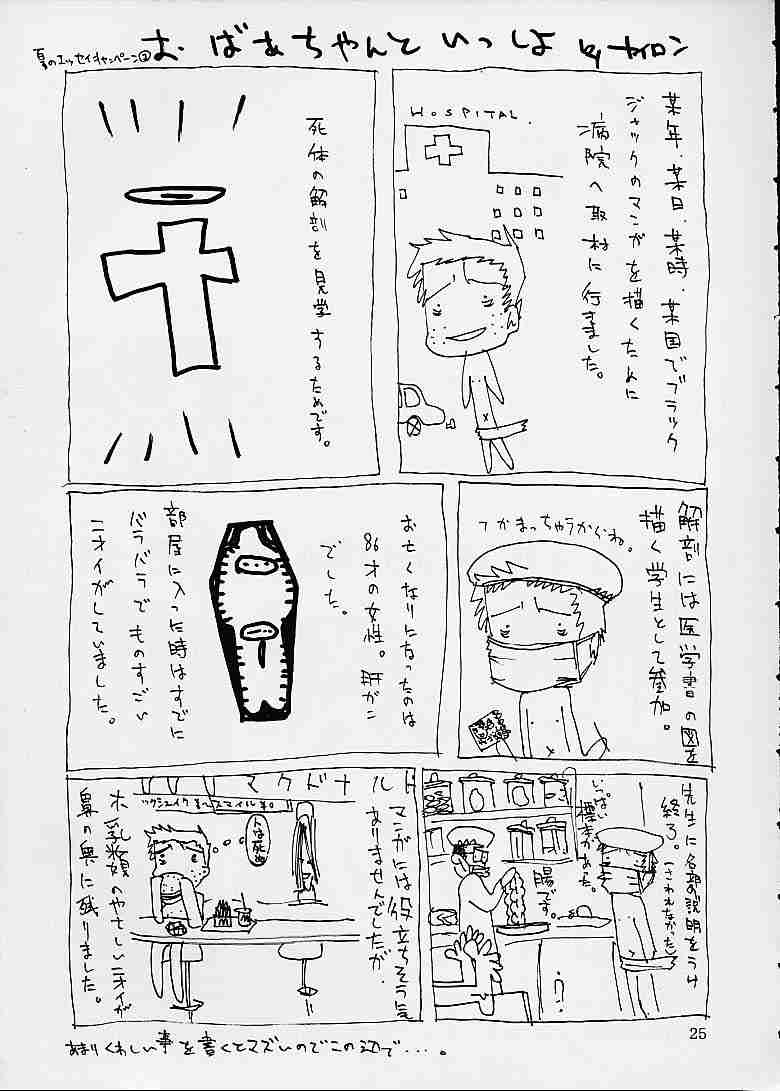 夏のエッセイキャンペーン②
おばあちゃんといっしょ
by ナイロン
某年、某日、某時、某国でブラック
ジャックのマンガを描くために
病院へ取材に行きました。
HOSPITAL.
死体の解剖を見学するためです。
解剖には医学書の図を
描く学生として参加。
つかまっちゃうからね。
お亡くなりになったのは
86才の女性。肝がん
でした。
部屋に入った時はすでに
バラバラでものすごい
ニオイがしていました。
先生に各部の説明をうけ
終了。(さわれなかった)
いっぱい
標本があった。
腸です。
マクドナルド
マンガには役立ちそうに
ありませんでしたが、
人は死ぬ
ホ乳瓶のやさしいニオイが
鼻の奥に残りました。
あまりくわしい事を書くとマズいのでこの辺で・・・。
25